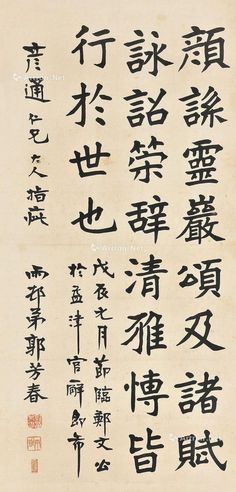 顏詠靈巖頌及諸賦
詠詔策辭清雅博皆
行於世也
戊辰七月節臨鄭文公
於孟津官廨即希
彦通仁兄大人指疵
雨邨弟郭芳春